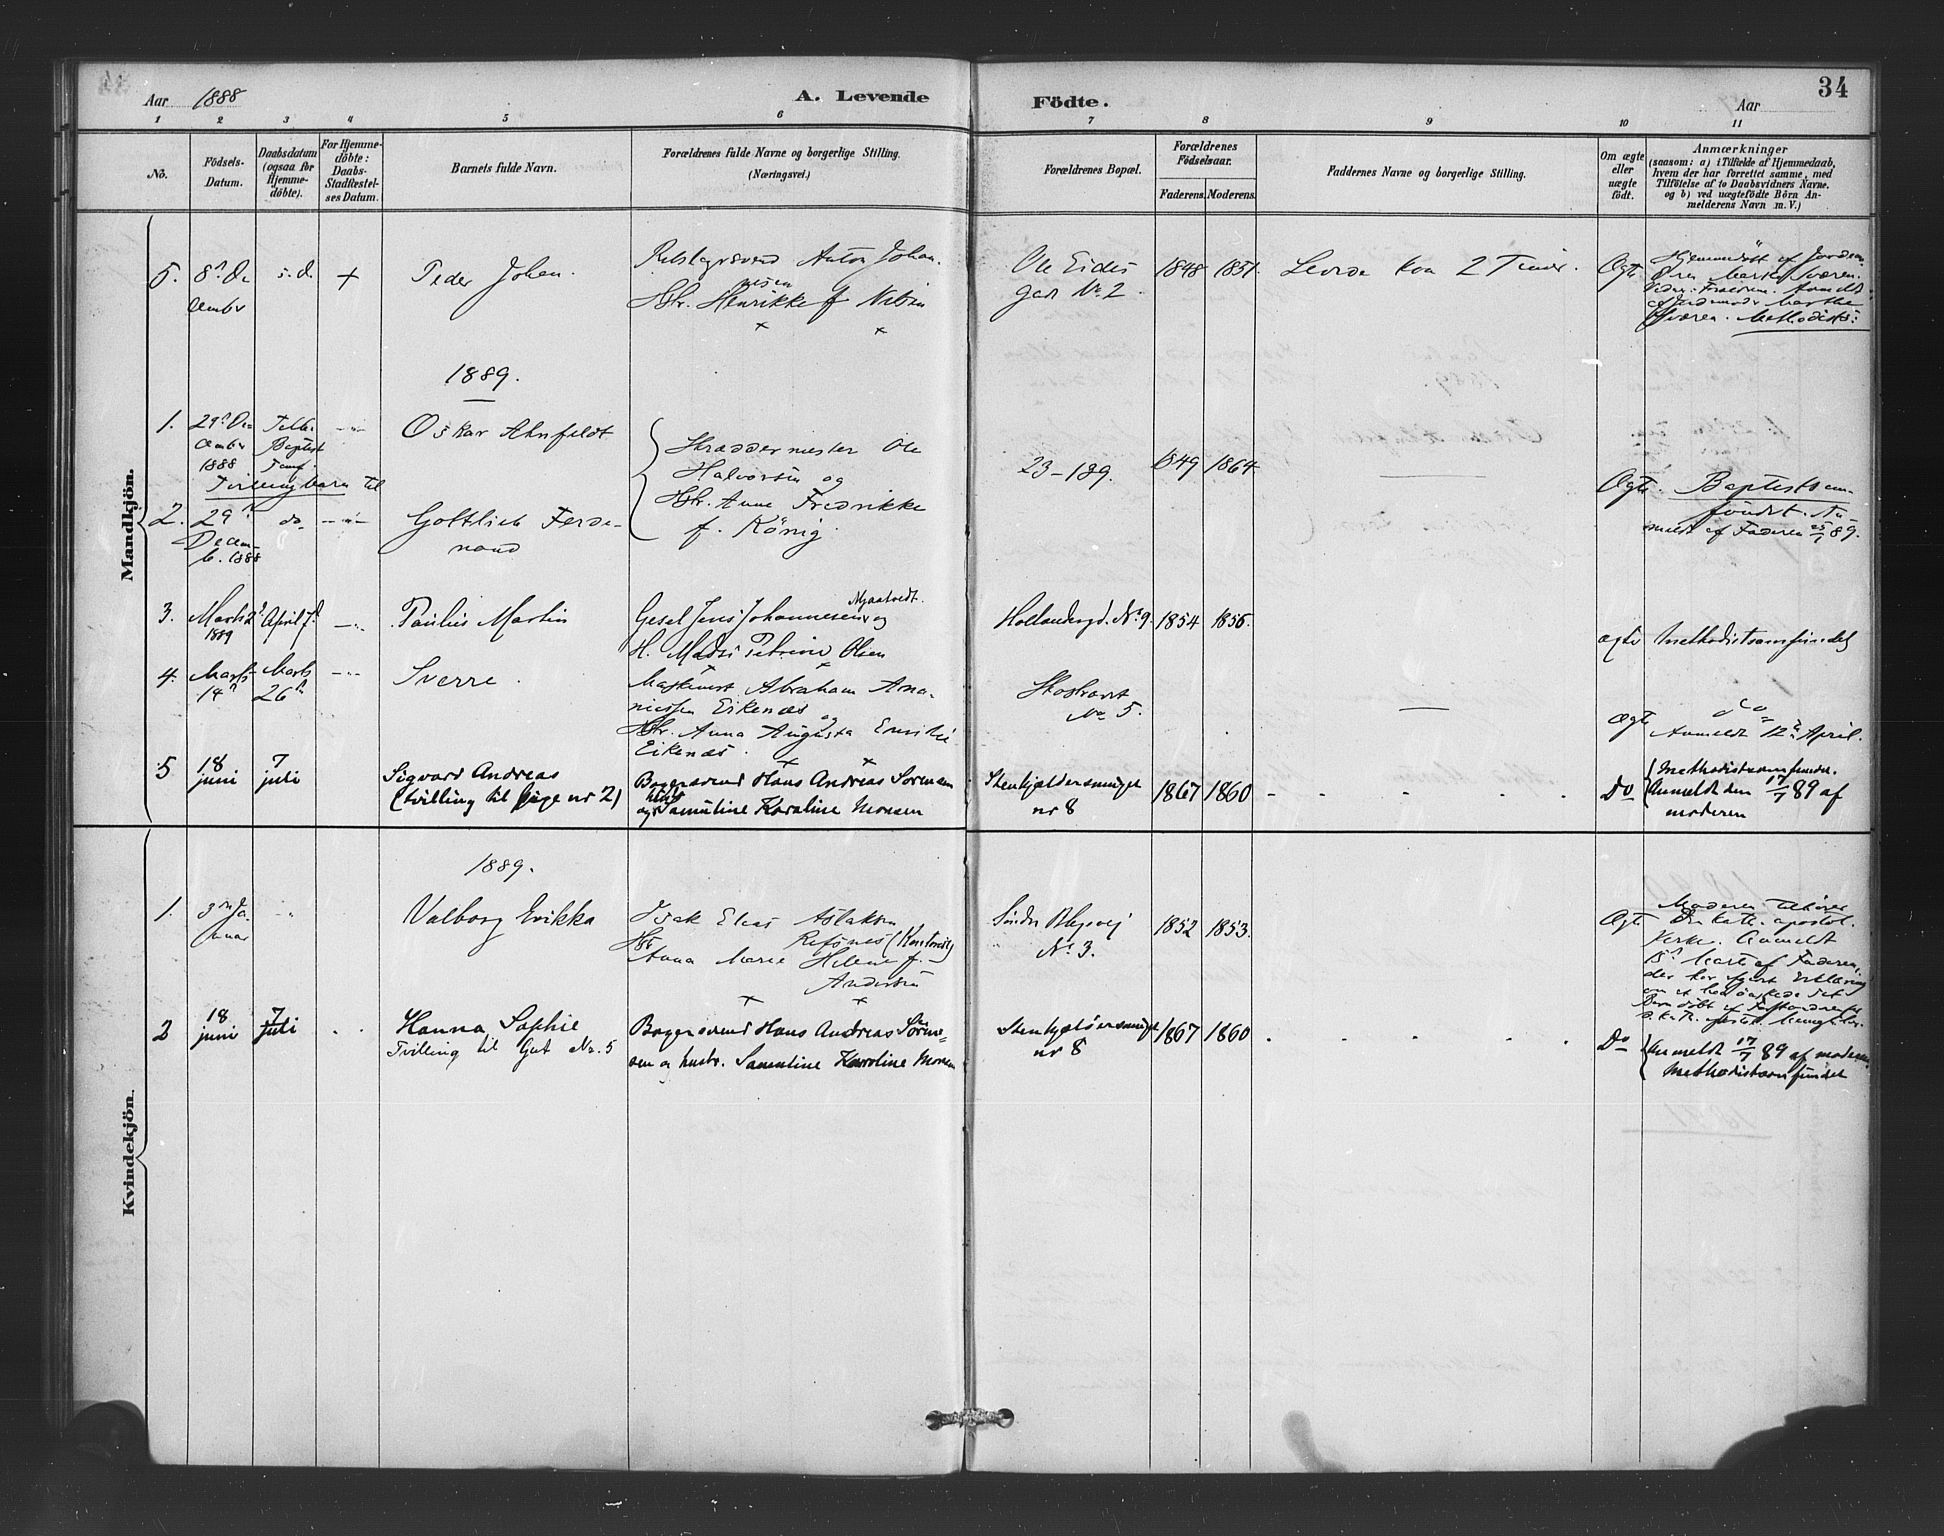 34
Aar 1888
A. Levende
Födte.
Aar
1 2 3 4 5 6 7 8 9 10 11
No.
Födsels-
Datum.
Daabsdatum
(ogsaa for
Hjemme-
döbte).
For Hjemme-
döbte:
Daabs-
Stadfæstel-
ses Datum.
Barnets fulde Navn.
Forældrenes fulde Navne og borgerlige Stilling.
(Næringsvei.)
Forældrenes Bopæl.
Forældrenes
Födselsaar.
Faderens. Moderens.
Faddernes Navne og borgerlige Stilling.
Om ægte
eller
uægte
födt.
Anmærkninger
(saasom: a) i Tilfælde af Hjemmedaab,
hvem der har forrettet samme, med
Tilföielse af to Daabsvidners Navne,
og b) ved uægtefödte Börn An-
melderens Navn m. V.)
Mandkjön.
5. 8de De
cember
s. d.
+
Peder Johan.
Anton Johan-
nesen
Hstr. Henrikke f Nilsen
Ole Eides
gad No. 2
1848 1851.
Levede kun 2 Timer.
Ægte
Hjemmedöbt af Jordem.
Methodists:
1889.
1. 29de De
cember
1888
Baptist
Tvillingbarn til
Oskar Ahnfeldt
Skræddermester Ole
Halvorsen og
Hstr. Anne Fredrikke
f. König
23-189.
1849 1864
Ægte.
Baptistsam-
fundet. An-
meldt af Faderen 25/1 89.
2. 29de
Decem-
b. 1888
do
Gottlieb Ferde-
nand
3. Marts 2
1889
April 7d
Paulus Martin
Gesel Jens Johannesen og
H. Petrine Olsen
Hollendergd. No 9. 1854 1856.
ægte Methodistsamfundet
4. Marts
14de
Marts
26de
Sverre.
Maskinist Abraham Ana-
niassen Eikenæs og
Hstr. Anna Augusta Emilie
Eikenæs.
No 5.
ægte
do
Anmeldt 12te April.
5 18
juni
7
juli
Sigvard Andreas
(tvilling til pige nr 2)
Bagersvend Hans Andreas Sörensen
og hustr Samuline Karoline Monsen
Stenkjeldersmuget
nr 8
1867 1860
Do
Methodistsamfundet.
Anmeldt den 17/7 89 af
moderen
Kvindekjön.
1889.
1. 3die Ja-
nuar
Valborg Erikka
Isak Elias Aslaksen
Refsnes
Hstr
Anna Marie Helene f.
Andersen
Söndre Blegevej
No 3.
1852 1853.
Ægte
Moderen tilhörer
Den kath. apostol.
Kirke. Anmeldt
af Faderen,
2 18
juni
7
Juli
Hanna Sophie
Tvilling til Gut No. 5
Bagersvend Hans Andreas Sören-
sen og hustr. Samuline Karoline Monsen
Stenkjeldersmuget
nr 8
1867 1860
Do
Anmeldt 17/7 89 af moderen
Methodistsamfundet